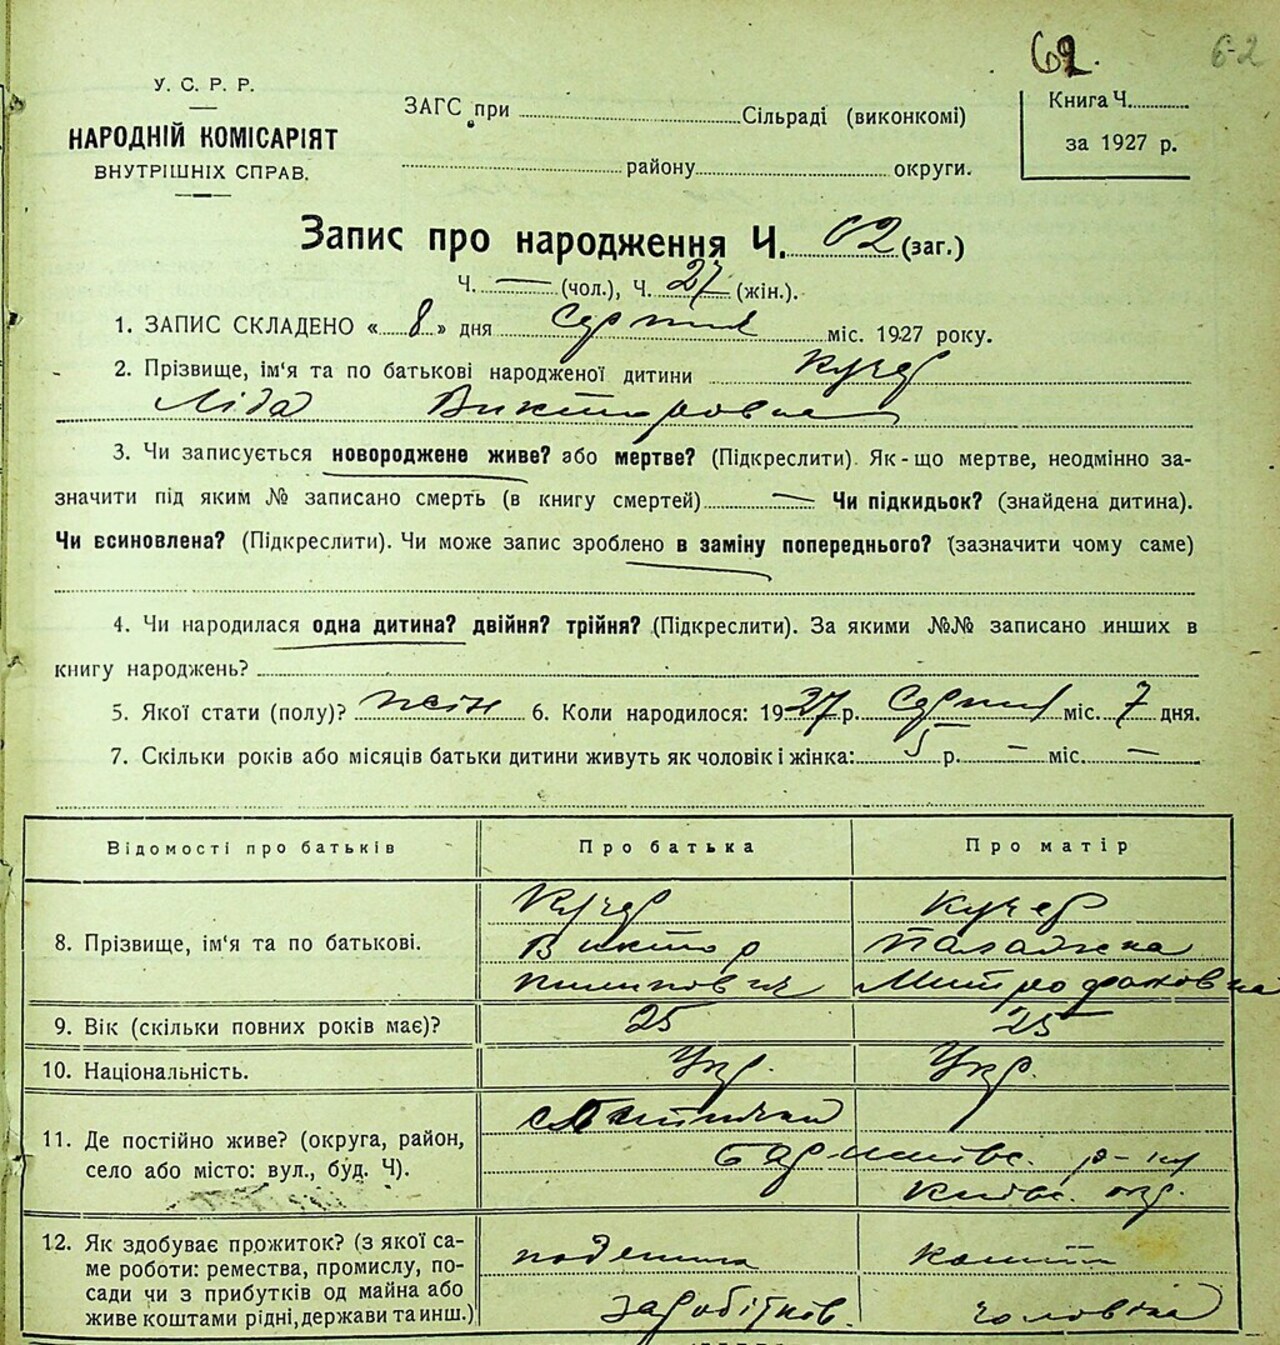 62. 6-2
У. С. Р. Р.
НАРОДНІЙ КОМІСАРІЯТ
ВНУТРІШНІХ СПРАВ.
ЗАГС при Сільраді (виконкомі)
району округи.
Книга Ч.
за 1927 р.
Запис про народження Ч. 62 (заг.)
Ч. — (чол.), Ч. 27 (жін.).
1. ЗАПИС СКЛАДЕНО « 8 » дня Серпня міс. 1927 року.
2. Прізвище, ім'я та по батькові народженої дитини Кучер
Ліда Викторовна
3. Чи записується новороджене живе? або мертве? (Підкреслити). Як-що мертве, неодмінно за-
значити під яким № записано смерть (в книгу смертей) — Чи підкидьок? (знайдена дитина).
Чи всиновлена? (Підкреслити). Чи може запис зроблено в заміну попереднього? (зазначити чому саме)
4. Чи народилася одна дитина? двійня? трійня? (Підкреслити). За якими №№ записано инших в
книгу народжень?
5. Якої стати (полу)? жін 6. Коли народилося: 1927 р. Серпня міс. 7 дня.
7. Скільки років або місяців батьки дитини живуть як чоловік і жінка: 5 р. — міс. —
Відомості про батьків Про батька Про матір
8. Прізвище, ім'я та по батькові.
Кучер
Виктор
Пилипович
Кучер
Палажка
Митрофановна
9. Вік (скільки повних років має)? 25 25
10. Національність. Укр. Укр.
11. Де постійно живе? (округа, район,
село або місто: вул., буд. Ч).
р-ну
Київс. окр.
12. Як здобуває прожиток? (з якої са-
ме роботи: ремества, промислу, по-
сади чи з прибутків од майна або
живе коштами рідні, держави та инш.)
поденна
заробітков.
кошти
чоловіка